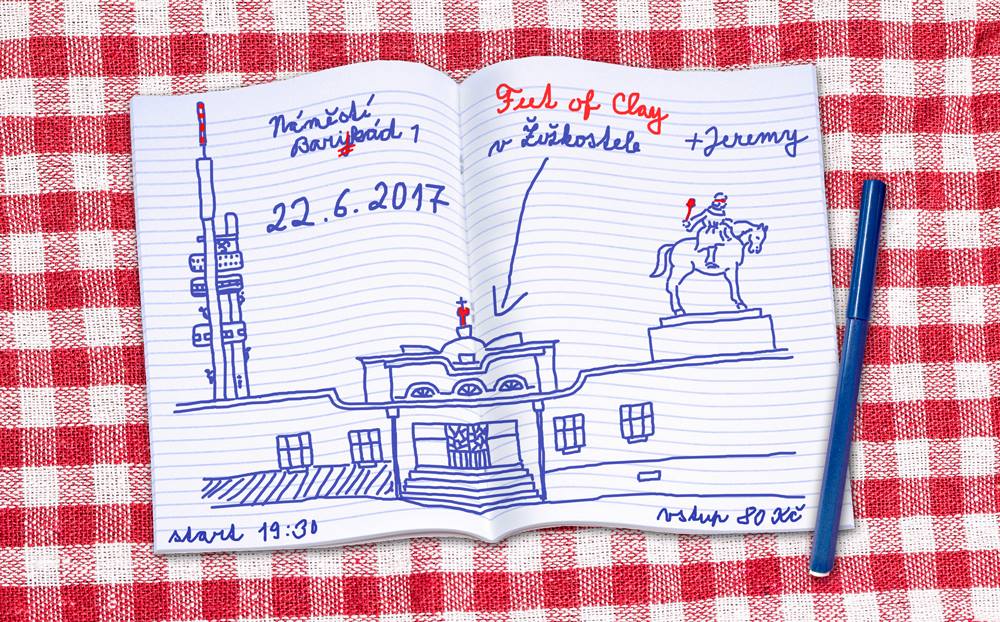 Náměstí
Barykád 1
22.6.2017
Feet of Clay
v Žižkostele
+Jeremy
start 19:30
vstup 80 Kč